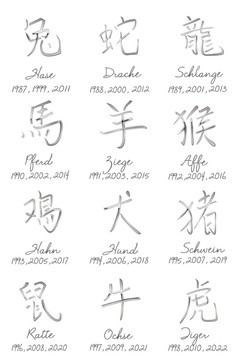 兔 蛇 龍
Hase Drache Schlange
1987, 1999, 2011 1988, 2000, 2012 1989, 2001, 2013
馬 羊 猴
Pferd Ziege Affe
1990, 2002, 2014 1991, 2003, 2015 1992, 2004, 2016
鳮 犬 猪
Hahn Hund Schwein
1993, 2005, 2017 1994, 2006, 2018 1995, 2007, 2019
鼠 牛 虎
Ratte Ochse Tiger
1996, 2008, 2020 1997, 2009, 2021 1998, 2010, 2022